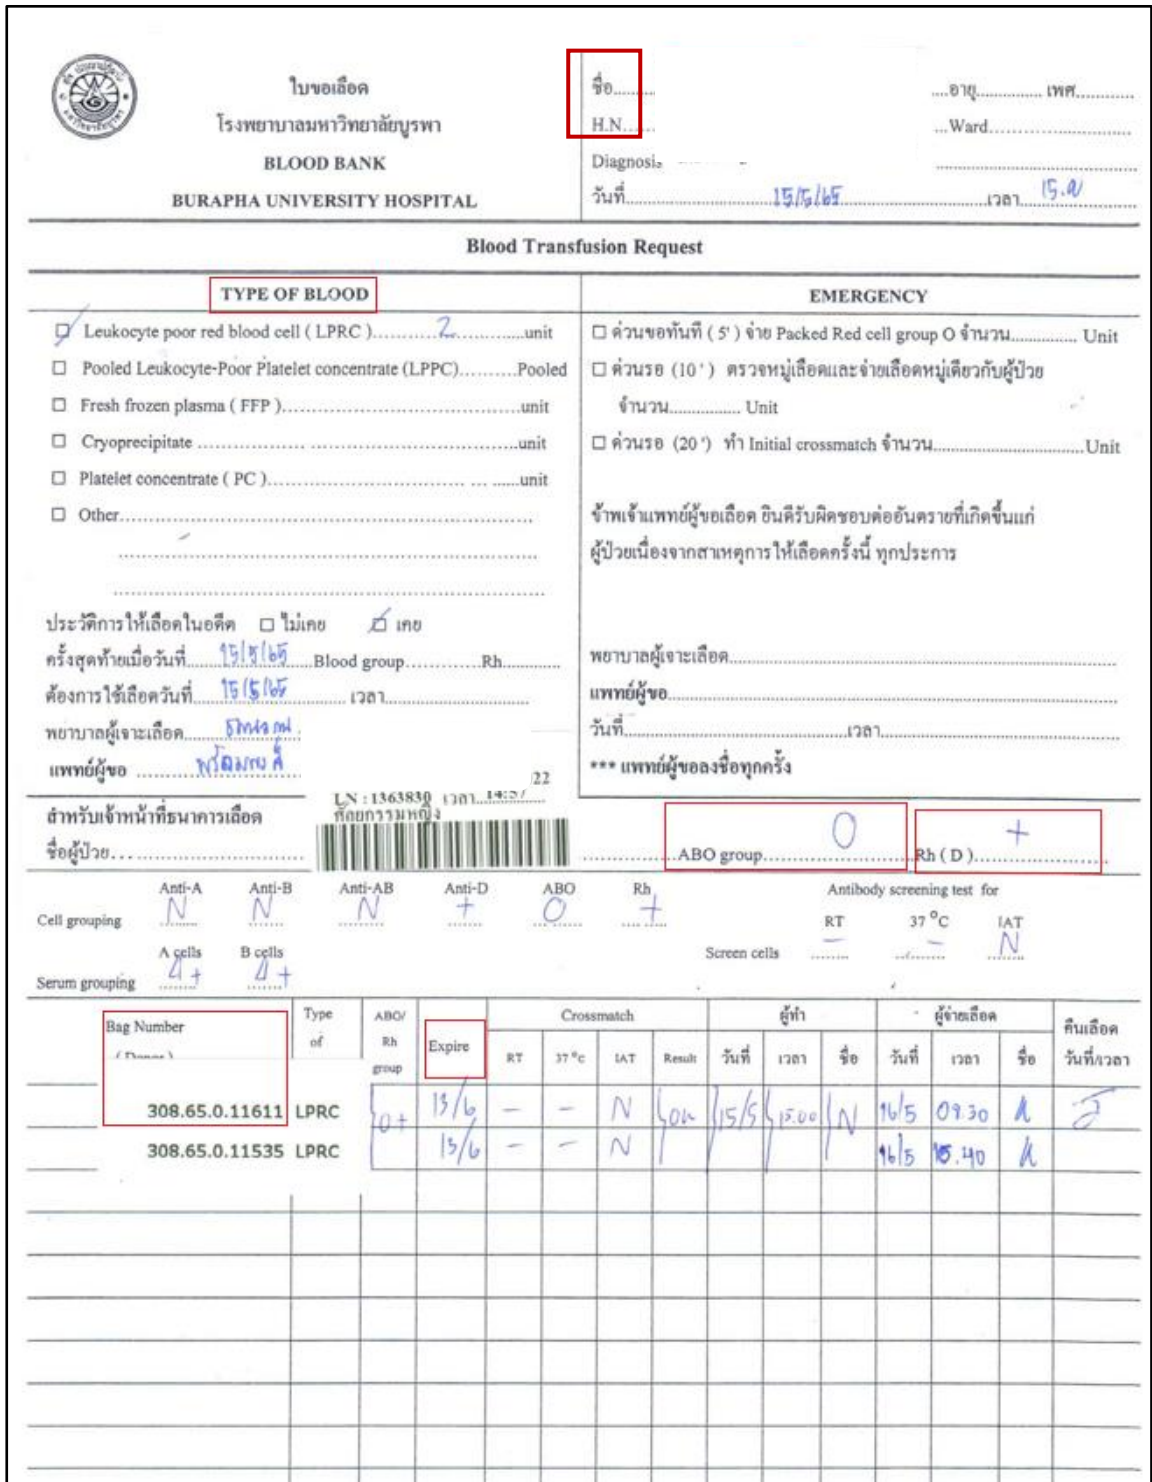 ใบขอเลือด
โรงพยาบาลมหาวิทยาลัยบูรพา
BLOOD BANK
BURAPHA UNIVERSITY HOSPITAL
ชื่อ.......... ....อายุ............... เพศ............
H.N...... ...Ward.....................
Diagnosis
วันที่ 15/5/65 เวลา 15.
Blood Transfusion Request
TYPE OF BLOOD
Leukocyte poor red blood cell ( LPRC ) 2 unit
☐ Pooled Leukocyte-Poor Platelet concentrate (LPPC)..........Pooled
☐ Fresh frozen plasma ( FFP )..........unit
☐ Cryoprecipitate ..........unit
☐ Platelet concentrate ( PC )..........unit
☐ Other..........
ประวัติการให้เลือดในอดีต ☐ ไม่เคย ☑ เคย
ครั้งสุดท้ายเมื่อวันที่ 15/5/65 Blood group............Rh............
ต้องการใช้เลือดวันที่ 15/5/65 เวลา..........
พยาบาลผู้เจาะเลือด
แพทย์ผู้ขอ
EMERGENCY
☐ ด่วนขอทันที ( 5' ) จ่าย Packed Red cell group O จำนวน............... Unit
☐ ด่วนรอ (10 ' ) ตรวจหมู่เลือดและจ่ายเลือดหมู่เดียวกับผู้ป่วย
จำนวน................ Unit
☐ ด่วนรอ (20 ') ทำ Initial crossmatch จำนวน..........Unit
ข้าพเจ้าแพทย์ผู้ขอเลือด ยินดีรับผิดชอบต่ออันตรายที่เกิดขึ้นแก่
ผู้ป่วยเนื่องจากสาเหตุการให้เลือดครั้งนี้ ทุกประการ
พยาบาลผู้เจาะเลือด..........
แพทย์ผู้ขอ..........
วันที่..........เวลา..........
*** แพทย์ผู้ขอลงชื่อทุกครั้ง
/22
LN : 1363830 เวลา 14:57
ศัลยกรรมหญิง
สำหรับเจ้าหน้าที่ธนาคารเลือด
ชื่อผู้ป่วย.......... ABO group O Rh ( D ) +
Anti-A Anti-B Anti-AB Anti-D ABO Rh Antibody screening test for
Cell grouping N N N + O + RT 37 °C IAT
A cells B cells Screen cells - - N
Serum grouping 4+ 4+
Bag Number Type of ABO/ Rh group Expire Crossmatch ผู้ทำ ผู้จ่ายเลือด คืนเลือด
( Donor ) RT 37 °C IAT Result วันที่ เวลา ชื่อ วันที่ เวลา ชื่อ วันที่/เวลา
308.65.0.11611 LPRC O+ 13/6 - - N 15/5 15.00 N 16/5 09.30
308.65.0.11535 LPRC 13/6 - - N 16/5 15.40